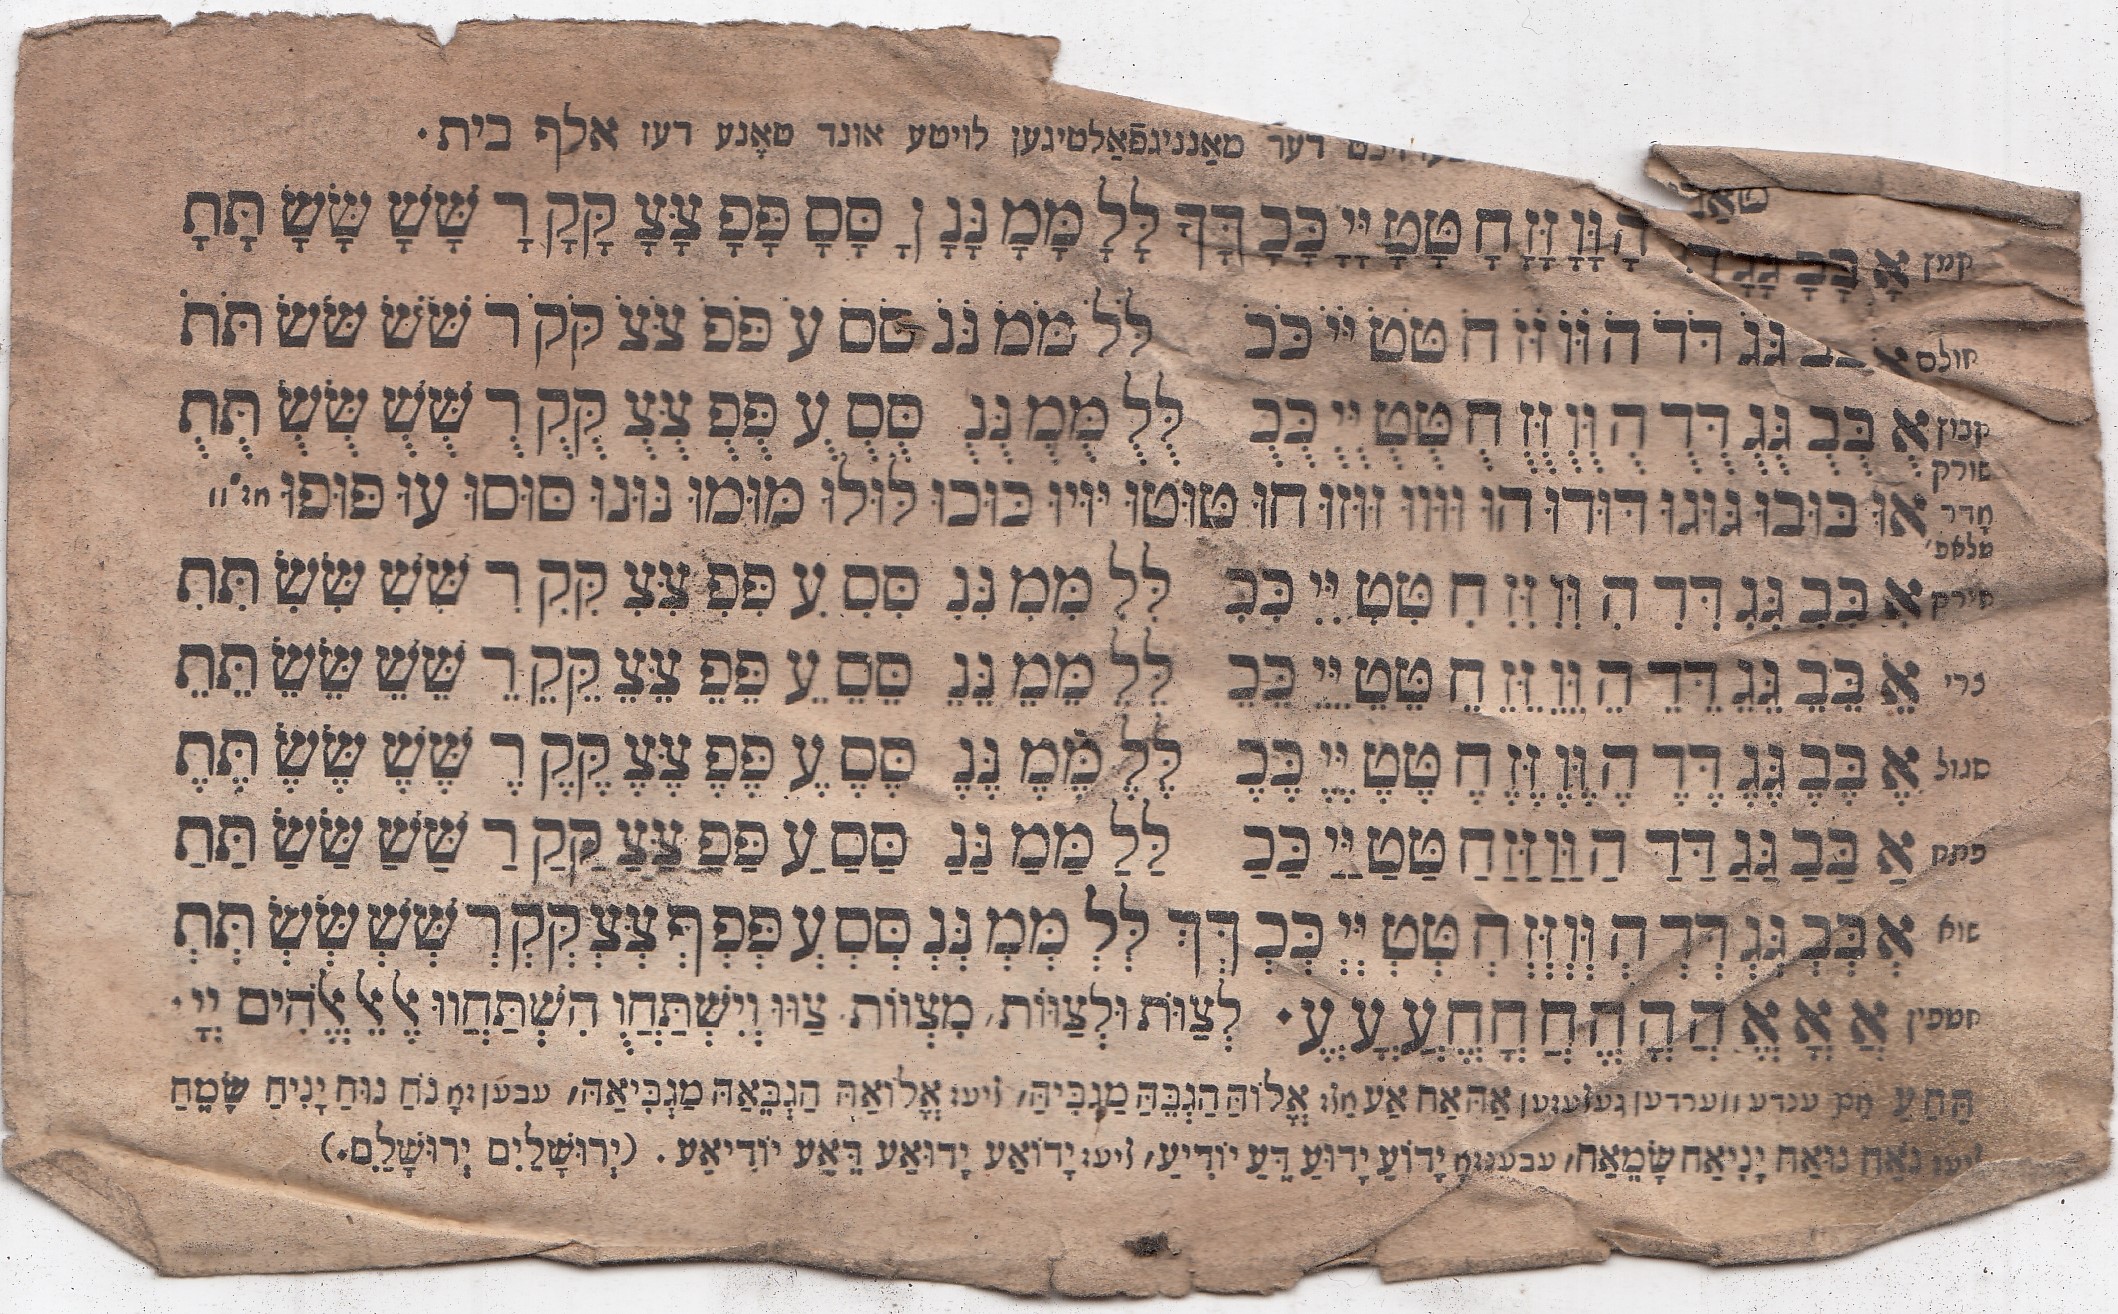 דער מאַנניגפֿאַלטיגען לויטע אונד טאָנע דעז אלף בית.
קמץ אָ בָּבָ גָּגָ הָ וָּוָ זָּזָ חָ טָּטָ יָּיָ כָּכָ ךָּךָ לָּלָ מָּמָ נָּנָ ןָ סָּסָ פָּפָ צָּצָ קָּקָ רָ שָּׁשָׁ שָּׂשָׂ תָּתָ
חולם גֹּגֹ דֹּדֹ הֹ וֹּוֹ זֹּזֹ חֹ טֹּטֹ יֹּיֹ כֹּכֹ לֹּלֹ מֹּמֹ נֹּנֹ סֹּסֹ עֹ פֹּפֹ צֹּצֹ קֹּקֹ רֹ שֹּׁשֹׁ שֹּׂשֹׂ תֹּתֹ
קבוץ אֻ בֻּבֻ גֻּגֻ דֻּדֻ הֻ וֻּוֻ זֻּזֻ חֻ טֻּטֻ יֻּיֻ כֻּכֻ לֻּלֻ מֻּמֻ נֻּנֻ סֻּסֻ עֻ פֻּפֻ צֻּצֻ קֻּקֻ רֻ שֻּׁשֻׁ שֻּׂשֻׂ תֻּתֻ
שורק
אוּ בּוּבוּ גּוּגוּ דּוּדוּ הוּ וּוּווּ זּוּזוּ חוּ טּוּטוּ יּוּיוּ כּוּכוּ לּוּלוּ מּוּמוּ נּוּנוּ סּוּסוּ עוּ פּוּפוּ
מלאפ׳
חירק אִ בִּבִ גִּגִ דִּדִ הִ וִּוִ זִּזִ חִ טִּטִ יִּיִ כִּכִ לִּלִ מִּמִ נִּנִ סִּסִ עִ פִּפִ צִּצִ קִּקִ רִ שִּׁשִׁ שִּׂשִׂ תִּתִ
צרי אֵ בֵּבֵ גֵּגֵ דֵּדֵ הֵ וֵּוֵ זֵּזֵ חֵ טֵּטֵ יֵּיֵ כֵּכֵ לֵּלֵ מֵּמֵ נֵּנֵ סֵּסֵ עֵ פֵּפֵ צֵּצֵ קֵּקֵ רֵ שֵּׁשֵׁ שֵּׂשֵׂ תֵּתֵ
סגול אֶ בֶּבֶ גֶּגֶ דֶּדֶ הֶ וֶּוֶ זֶּזֶ חֶ טֶּטֶ יֶּיֶ כֶּכֶ לֶּלֶ מֶּמֶ נֶּנֶ סֶּסֶ עֶ פֶּפֶ צֶּצֶ קֶּקֶ רֶ שֶּׁשֶׁ שֶּׂשֶׂ תֶּתֶ
פתח אַ בַּבַ גַּגַ דַּדַ הַ וַּוַ זַּזַ חַ טַּטַ יַּיַ כַּכַ לַּלַ מַּמַ נַּנַ סַּסַ עַ פַּפַ צַּצַ קַּקַ רַ שַּׁשַׁ שַּׂשַׂ תַּתַ
שוא אְ בְּבְ גְּגְ דְּדְ הְ וְּוְ זְּזְ חְ טְּטְ יְּיְ כְּכְ ךְּךְ לְּלְ מְּמְ נְּנְ סְּסְ עְ פְּפְ ףְּ צְּצְ קְּקְ רְ שְּׁשְׁ שְּׂשְׂ תְּתְ
חטפין אֲ אֳ אֱ הֲ הֳ הֱ חֲ חֳ חֱ עֲ עֳ עֱ. לְצַוֹּת וּלְצַוּוֹת, מִצְוֹות. צַוּוּ וְיִשְׁתַּחֲוֻ הִשְׁתַּחֲווּ אֱלֹהִים יְיָ.
הַּ חַ עַ ענדע ווערדען געלעזען אַהּ אַח אַע אֱלוֹהַּ הַגְבֵּהַּ מַגְבִּיהַּ, וויע: אֱלוֹאַהּ הַגְבֵּאַהּ מַגְבִּיאַהּ, עבען נֹחַ נוּחַ יָנִיחַ שָׂמֵחַ
וויע: נֹאַח נוּאַח יָנִיאַח שָׂמֵאַח, עבענזא יָדוֹעַ יָדוּעַ דֵּעַ יוֹדִיעַ, וויע: יָדוֹאַע יָדוּאַע דֵּאַע יוֹדִיאַע. (יְרוּשָׁלַיִם יְרוּשָׁלִַם.)